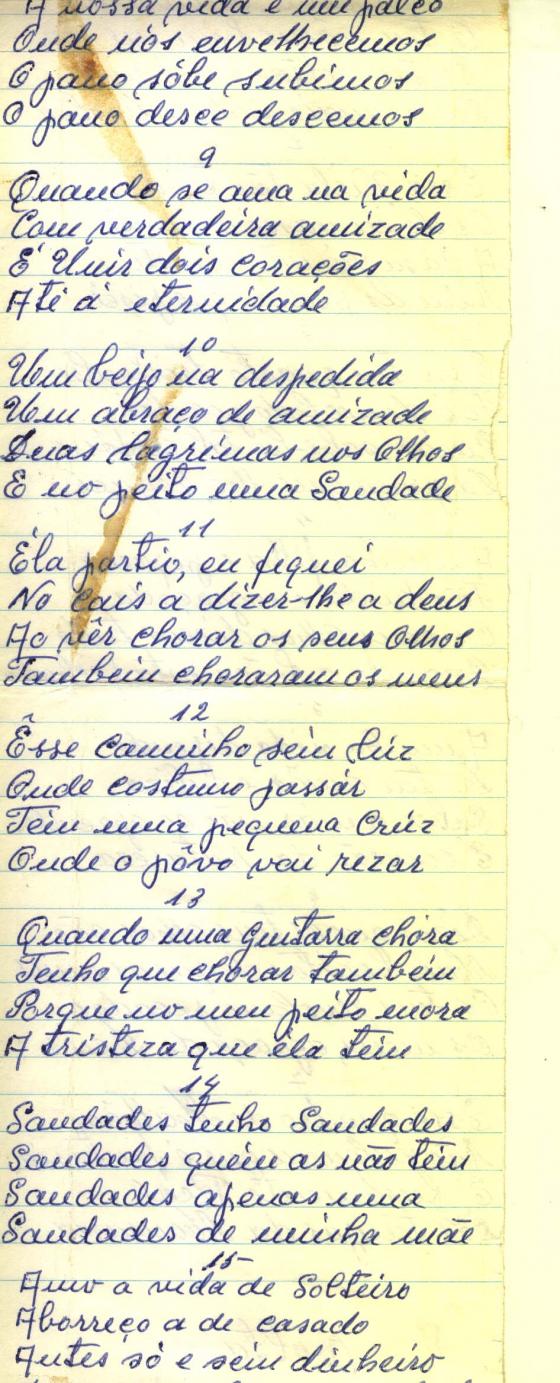 A nossa vida é um palco
Onde nós envelhecemos
O pano sóbe subimos
O pano desce descemos
9
Quando se ama na vida
Com verdadeira amizade
É Unir dois corações
Até á eternidade
10
Um beijo na despedida
Um abraço de amizade
Duas lágrimas nos Olhos
E no peito uma Saudade
11
Éla partio, eu fiquei
No Cais a dizer-lhe a deus
Ao vêr chorar os seus Olhos
Também choraram os meus
12
Êsse Caminho sem lúz
Onde costumo passár
Tem uma pequena Crúz
Onde o pôvo vai rezar
13
Quando uma guitarra chóra
Tenho que chorar também
Porque no meu peito mora
A tristeza que éla têm
14
Saudades tenho Saudades
Saudades quem as não têm
Saudades apenas uma
Saudades de minha mãe
15
Amo a vida de Solteiro
Aborreço a de casado
Antes só e sem dinheiro